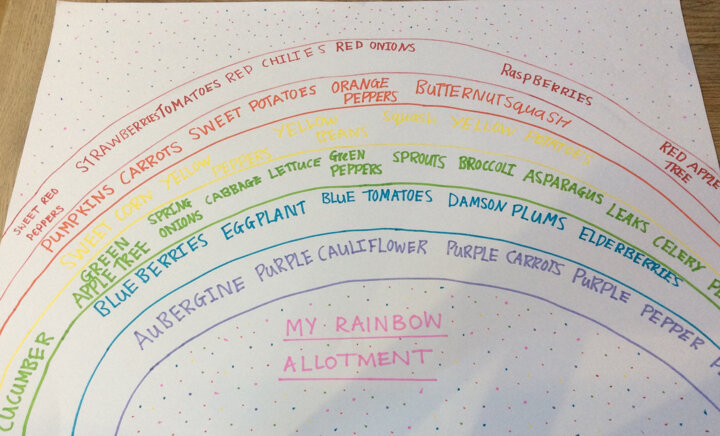 SWEET RED PEPPERS STRAWBERRIES TOMATOES RED CHILIES RED ONIONS RASPBERRIES RED APPLE TREE
PUMPKINS CARROTS SWEET POTATOES ORANGE PEPPERS BUTTERNUT SQUASH
SWEET CORN YELLOW PEPPERS YELLOW BEANS Squash YELLOW POTATOES
CUCUMBER GREEN APPLE TREE SPRING ONIONS CABBAGE LETTUCE GREEN PEPPERS SPROUTS BROCCOLI ASPARAGUS LEAKS CELERY
BLUEBERRIES EGGPLANT BLUE TOMATOES DAMSON PLUMS ELDERBERRIES
AUBERGINE PURPLE CAULIFLOWER PURPLE CARROTS PURPLE PEPPER
MY RAINBOW
ALLOTMENT